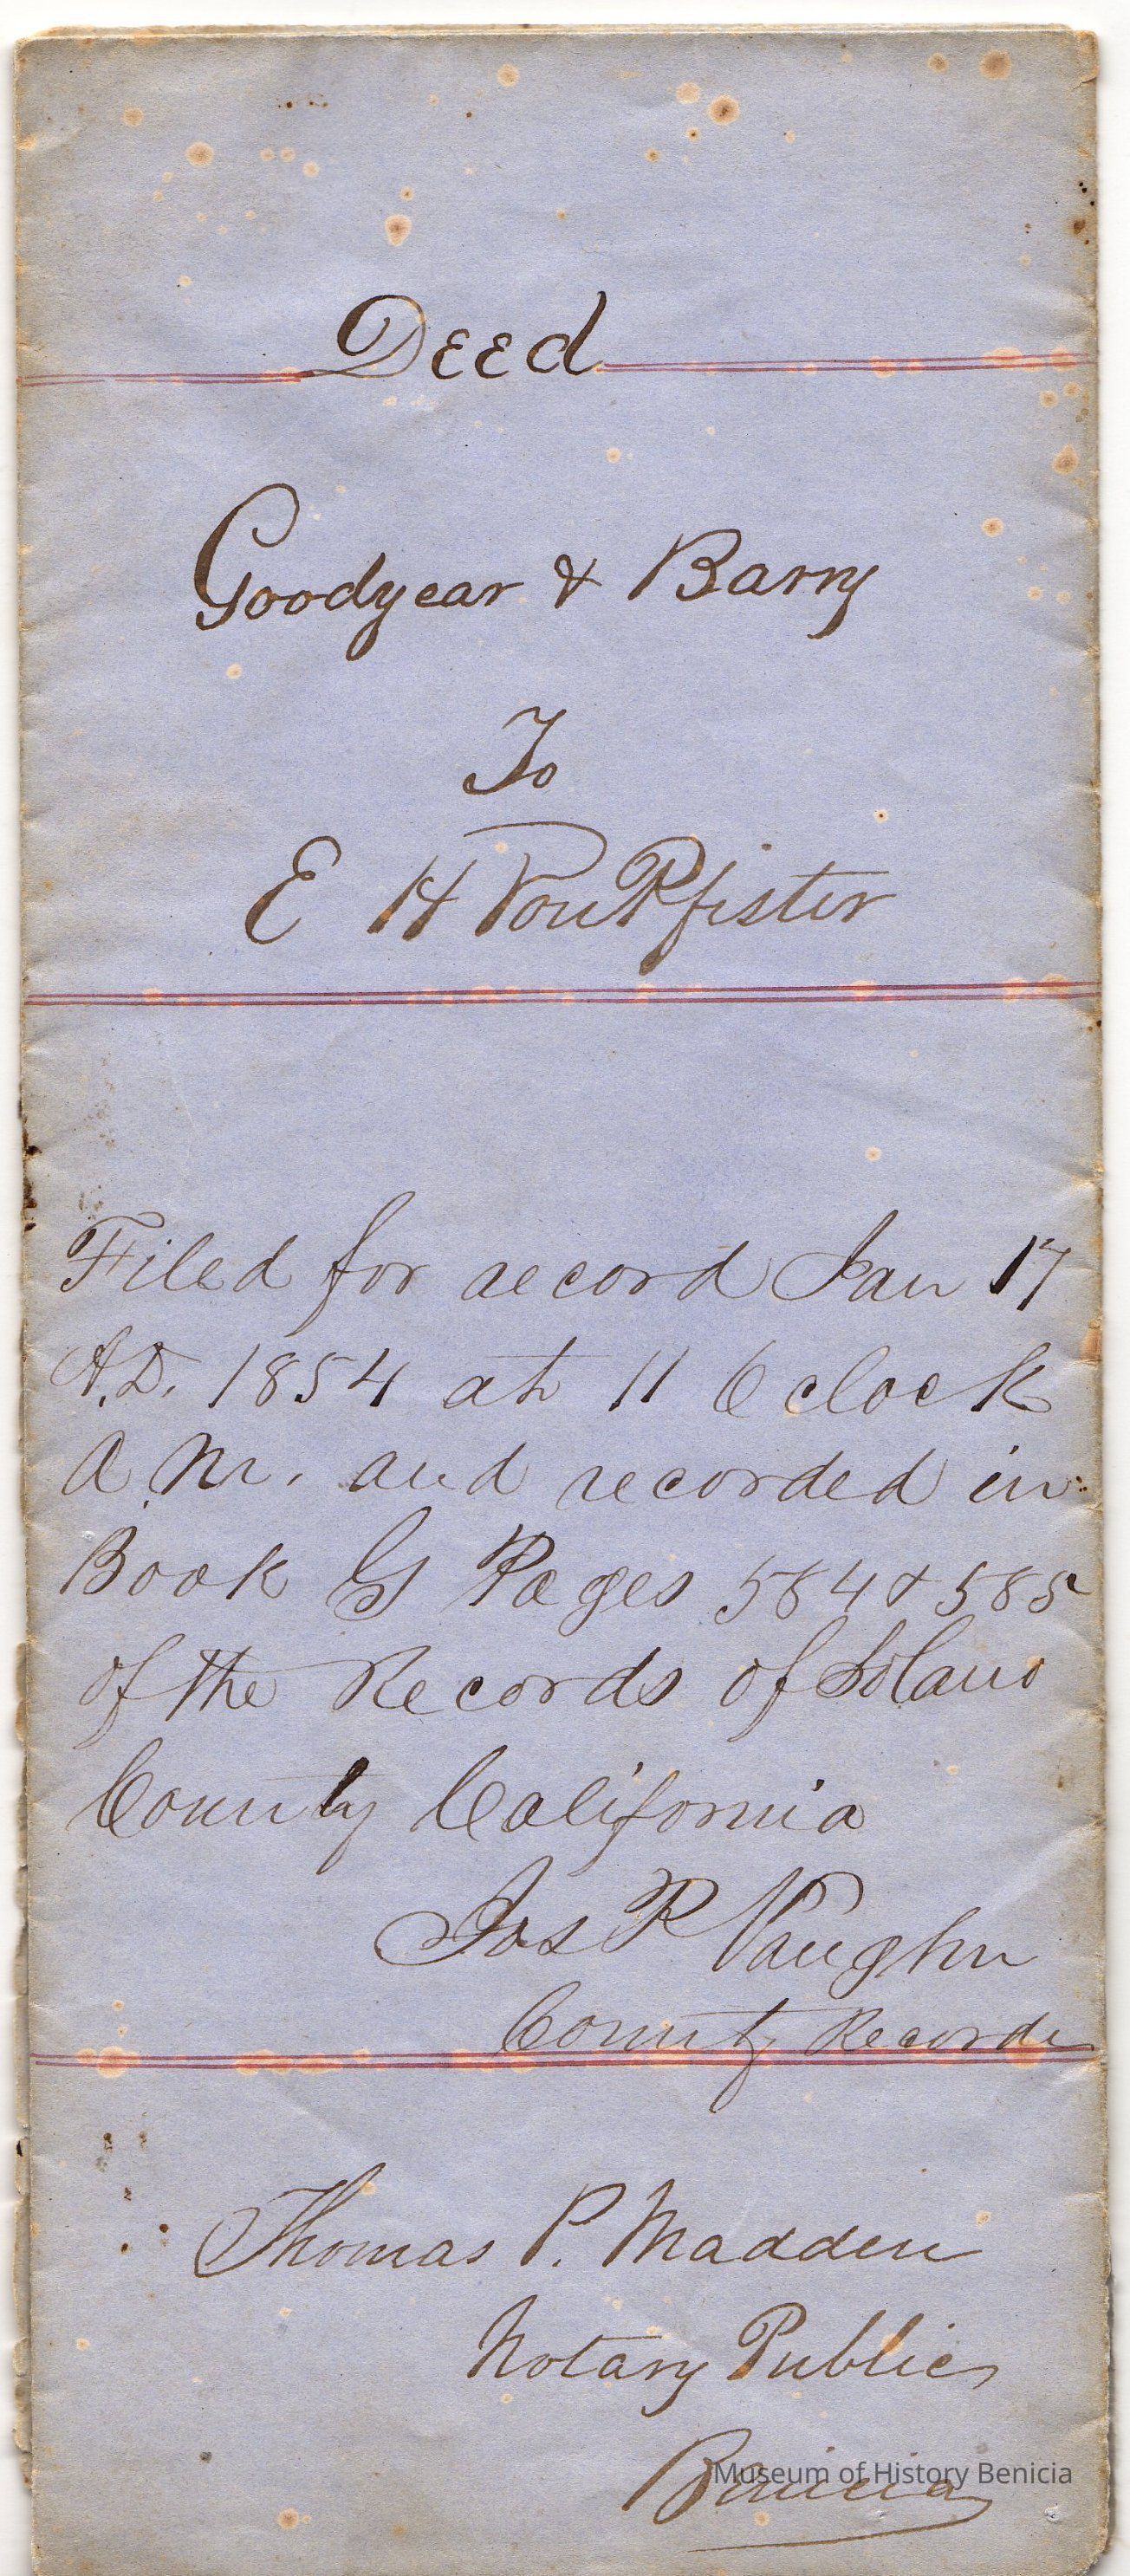 Deed
Goodyear & Barry
To
E H Von Pfister
Filed for record Jan 17
A.D. 1854 at 11 O clock
A.M. and recorded in
Book G Pages 584 & 585
of the Records of Solano
County California
Jos P Vaughn
County Recorder
Thomas P. Madden
Notary Public
Benicia
Museum of History Benicia